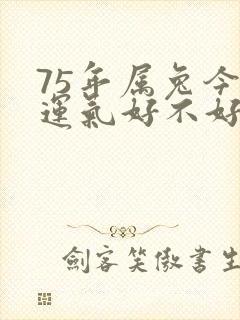 75年属兔今
運氣好不好
劍客笑傲書生